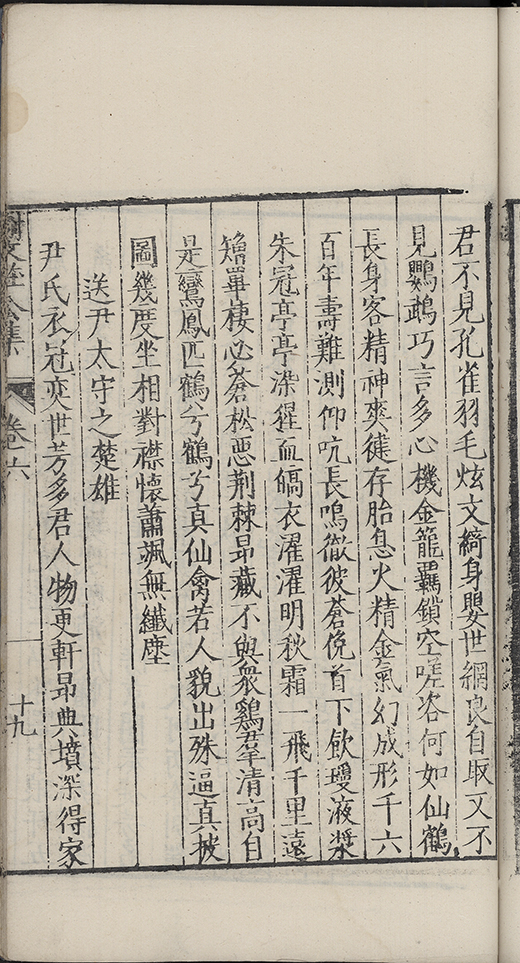 君不見孔雀羽毛炫文綺身嬰世網良自取又不
見鸚鵡巧言多心機金籠羈鎖空嗟咨何如仙鶴
長身客精神爽徤存胎息火精金氣幻成形千六
百年壽難測仰吭長鳴徹彼蒼俛首下飲瓊液漿
朱冠亭亭染猩血縞衣濯濯明秋霜一飛千里遠
矰罿棲必蒼松惡荆棘昻藏不與衆鷄羣清高自
是鸞鳳匹鶴兮鶴兮真仙禽若人貌出殊逼真披
圖幾度坐相對襟懷蕭颯無纖塵
送尹太守之楚雄
尹氏衣冠奕世芳多君人物更軒昻典墳深得家
卷六
十九